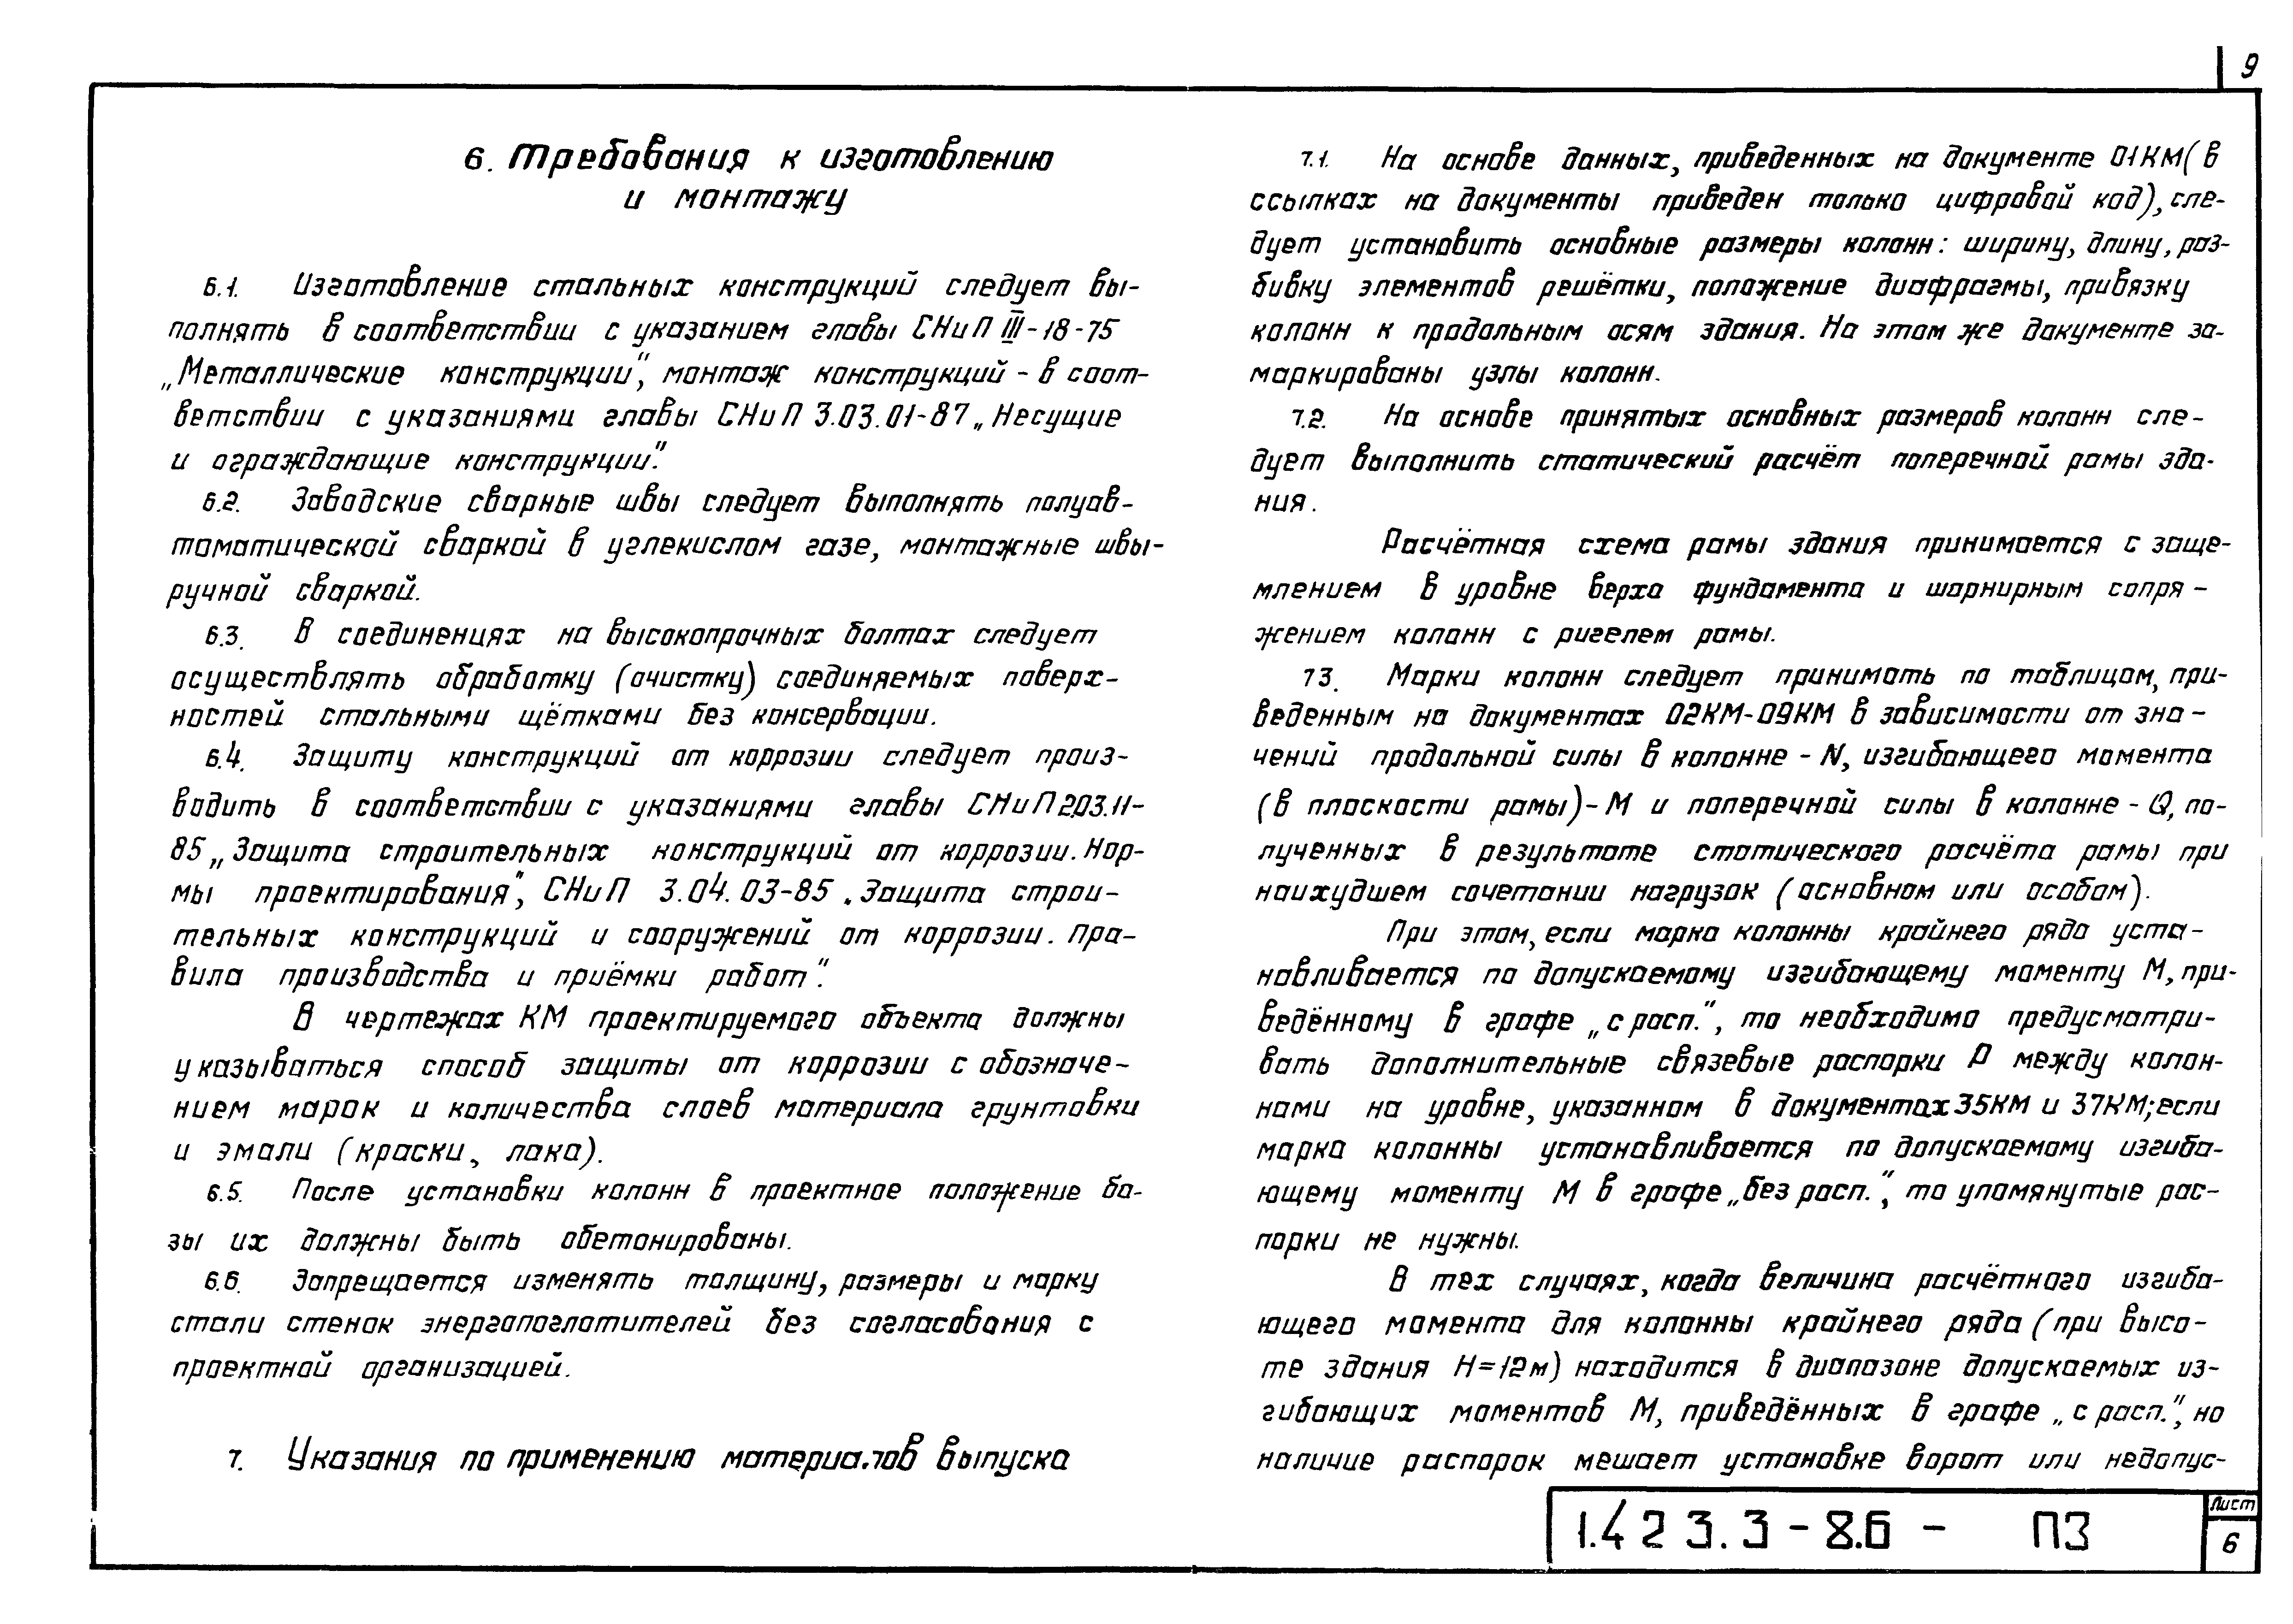 9
6. Требования к изготовлению
и монтажу
6.1. Изготовление стальных конструкций следует вы-
полнять в соответствии с указанием главы СНиП III-18-75
„Металлические конструкции", монтаж конструкций - в соот-
ветствии с указаниями главы СНиП 3.03.01-87 „Несущие
и ограждающие конструкции".
6.2. Заводские сварные швы следует выполнять полуав-
томатической сваркой в углекислом газе, монтажные швы-
ручной сваркой.
6.3. В соединенцях на высокопрочных болтах следует
осуществлять обработку (очистку) соединяемых поверх-
ностей стальными щётками без консервации.
6.4. Защиту конструкций от коррозии следует произ-
водить в соответствии с указаниями главы СНиП 2.03.11-
85 „Защита строительных конструкций от коррозии. Нор-
мы проектирования", СНиП 3.04.03-85 „Защита строи-
тельных конструкций и сооружений от коррозии. Пра-
вила производства и приёмки работ".
В чертежах КМ проектируемого объекта должны
указываться способ защиты от коррозии с обозначе-
нием марок и количества слоев материала грунтовки
и эмали (краски, лака).
6.5. После установки колонн в проектное положение ба-
зы их должны быть обетонированы.
6.6. Запрещается изменять толщину, размеры и марку
стали стенок энергопоглотителей без согласования с
проектной организацией.
7. Указания по применению материалов выпуска
7.1. На основе данных, приведенных на документе 01КМ (в
ссылках на документы приведен только цифровой код), сле-
дует установить основные размеры колонн: ширину, длину, раз-
бивку элементов решётки, положение диафрагмы, привязку
колонн к продольным осям здания. На этом же документе за-
маркированы узлы колонн.
7.2. На основе принятых основных размеров колонн сле-
дует выполнить статический расчёт поперечной рамы зда-
ния.
Расчётная схема рамы здания принимается с заще-
млением в уровне верха фундамента и шарнирным сопря-
жением колонн с ригелем рамы.
7.3. Марки колонн следует принимать по таблицам, при-
веденным на документах 02КМ-09КМ в зависимости от зна-
чений продольной силы в колонне - N, изгибающего момента
(в плоскости рамы) - М и поперечной силы в колонне - Q, по-
лученных в результате статического расчёта рамы при
наихудшем сочетании нагрузок (основном или особом).
При этом, если марка колонны крайнего ряда уста-
навливается по допускаемому изгибающему моменту М, при-
ведённому в графе „с расп.", то необходимо предусматри-
вать дополнительные связевые распорки Р между колон-
нами на уровне, указанном в документах 35КМ и 37КМ; если
марка колонны устанавливается по допускаемому изгиба-
ющему моменту М в графе „без расп.", то упомянутые рас-
порки не нужны.
В тех случаях, когда величина расчётного изгиба-
ющего момента для колонны крайнего ряда (при высо-
те здания Н=12м) находится в диапазоне допускаемых из-
гибающих моментов М, приведённых в графе „с расп.", но
наличие распорок мешает установке ворот или недопус-
1.423.3-8.6 - ПЗ
Лист
6